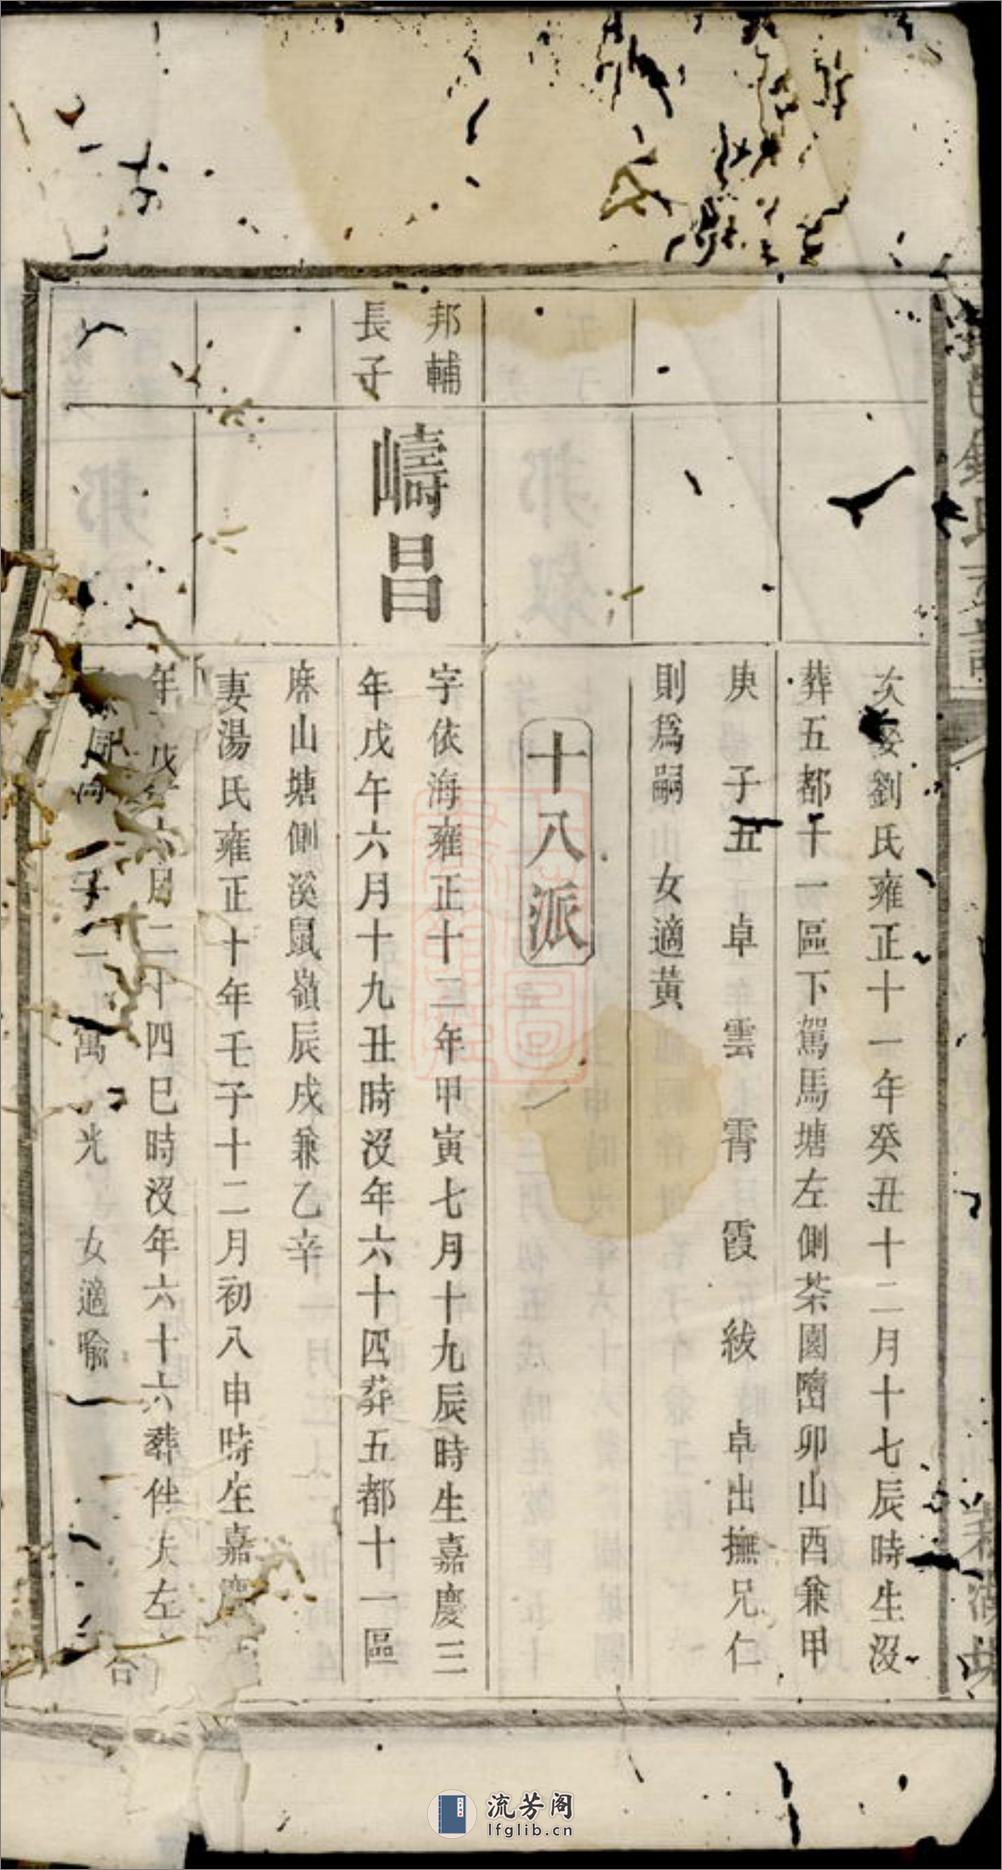 次娶劉氏雍正十一年癸丑十二月十七辰時生沒
葬五都十一區下駕馬塘左側茶園嶞卯山酉兼甲
庚 子五 卓 雲 霄 霞 紱 卓出撫兄仁
則爲嗣 女適黃
十八派
邦輔
長子
嶹昌
字依海雍正十二年甲寅七月十九辰時生嘉慶三
年戊午六月十九丑時沒年六十四葬五都十一區
麻山塘側溪鼠嶺辰戌兼乙辛
妻湯氏雍正十年壬子十二月初八申時生嘉慶
年戊 月二十四巳時沒年六十六葬伴夫左
合 同向 子二 寓 光 女適喻
流芳阁
lfglib.cn